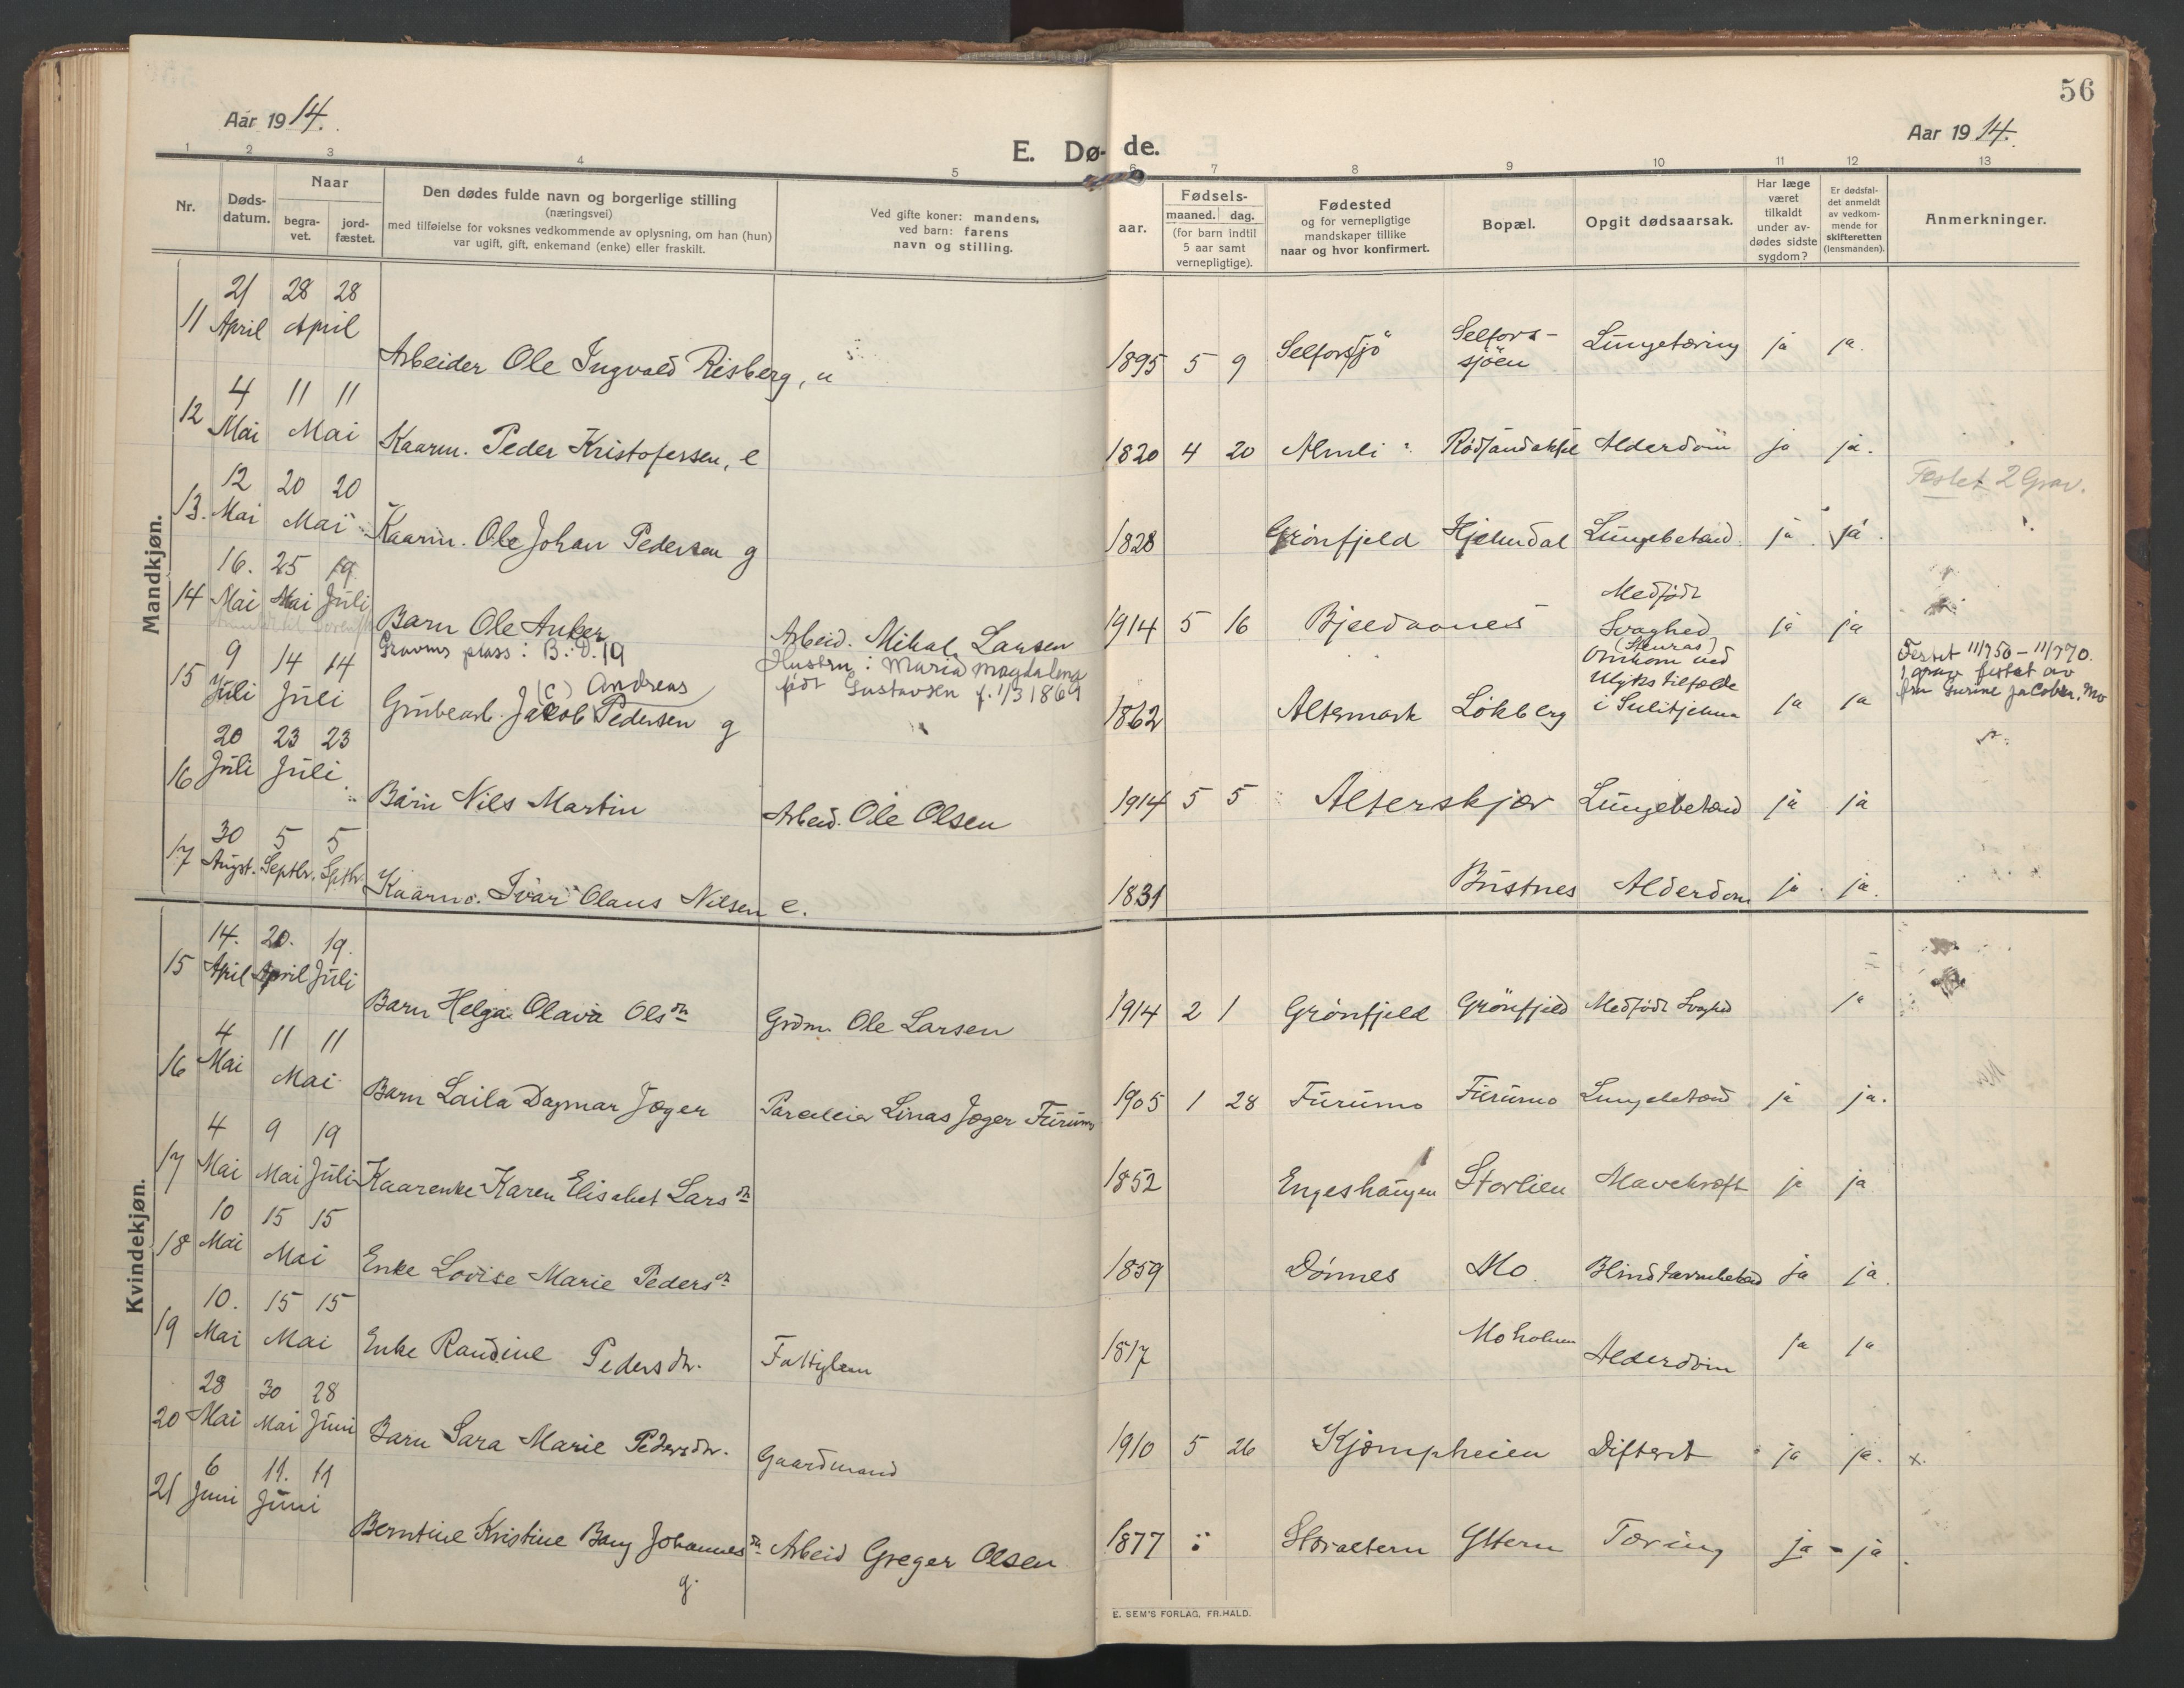 56
Aar 1914.
E. Dø- de.
Aar 1914.
1 2 3 4 5 6 7 8 9 10 11 12 13
Nr.
Døds-
datum.
Naar
begra-
vet.
jord-
fæstet.
Den dødes fulde navn og borgerlige stilling
(næringsvei)
med tilføielse for voksnes vedkommende av oplysning, om han (hun)
var ugift, gift, enkemand (enke) eller fraskilt.
Ved gifte koner: mandens,
ved barn: farens
navn og stilling.
Fødsels-
aar.
maaned. dag.
(for barn indtil
5 aar samt
vernepligtige).
Fødested
og for vernepligtige
mandskaper tillike
naar og hvor konfirmert.
Bopæl.
Opgit dødsaarsak.
Har læge
været
tilkaldt
under av-
dødes sidste
sygdom?
Er dødsfal-
det anmeldt
av vedkom-
mende for
skifteretten
(lensmanden).
Anmerkninger.
Mandkjøn.
11 21 April 28 28 April Arbeider Ole Ingvald Risberg, u 1895 5 9 Selforssjö Selfors-
sjöen Lungetæring ja ja.
12 4 Mai 11 11 Mai Kaarm. Peder Kristofersen, e 1820 4 20 Almli Alderdom ja ja.
Festet 2 Grav.
13. 12 Mai 20 20 Mai Kaarm. Ole Johan Pedersen g 1828 Grönfjeld Hjelmdal Lungebetænd. ja ja.
14 16. Mai 25 Mai 19 Juli Barn Ole Anker Arbeid. Mikal Larsen 1914 5 16 Bjeldaanes Medfödt
Svaghed ja ja
Gravens plass: B.D.19
Hustru: Maria Magdalena
født Gustavsen f. 1/3 1869
15 9 Juli 14 14 Juli Grubearb. Jakob (c) Andreas Pedersen g 1862 Altermark Lökberg Omkom ved
Ulykstilfælde
i Sulitjelma ja ja
Festet 11/7 50 – 11/7 70.
1 grav festet av
fru Jacobsen, Mo
16 20 Juli 23 23 Juli Barn Nils Martin Arbeid. Ole Olsen 1914 5 5 Alterskjær Lungebetænd ja ja
17 30 Augst. 5 Septbr. 5 Sptbr. Kaarm. Ivar Olaus Nilsen e. 1831 Bustnes Alderdom ja ja.
Kvindekjøn.
15 14. April 20. April 19. Juli Barn Helga Olava Olsdtr Grdm. Ole Larsen 1914 2 1 Grönfjeld Grönfjeld Medfödt Svaghed ja
16 4 Mai 11 11 Mai Barn Laila Dagmar Jæger Linas Jæger Furumo 1905 1 28 Furumo Furumo Lungebetænd ja ja.
17 4 Mai 9 Mai 19 Juli Kaarenke Karen Elisabet Larsdtr 1852 Engeshaugen Storlien Mavekræft ja ja
18 10 Mai 15 15 Mai Enke Lovise Marie Pedersdtr 1859 Dönnes Mo Blindtarmbetænd ja ja.
19 10. Mai 15 15 Mai Enke Randine Pedersdtr. Fattiglem 1817 Moholmen Alderdom ja ja
20 28 Mai 30 Mai 28 Juni Barn Sara Marie Pedersdtr. Gaardmand 1910 5 26 Kjæmpheien Difterit ja ja. x.
21 6 Juni 11. 11 Juni Berntine Kristine Bang Johannesdtr g. Arbeid Greger Olsen 1877 Storaltern Yttern Tæring ja - ja.
E. SEM'S FORLAG, FR.HALD.